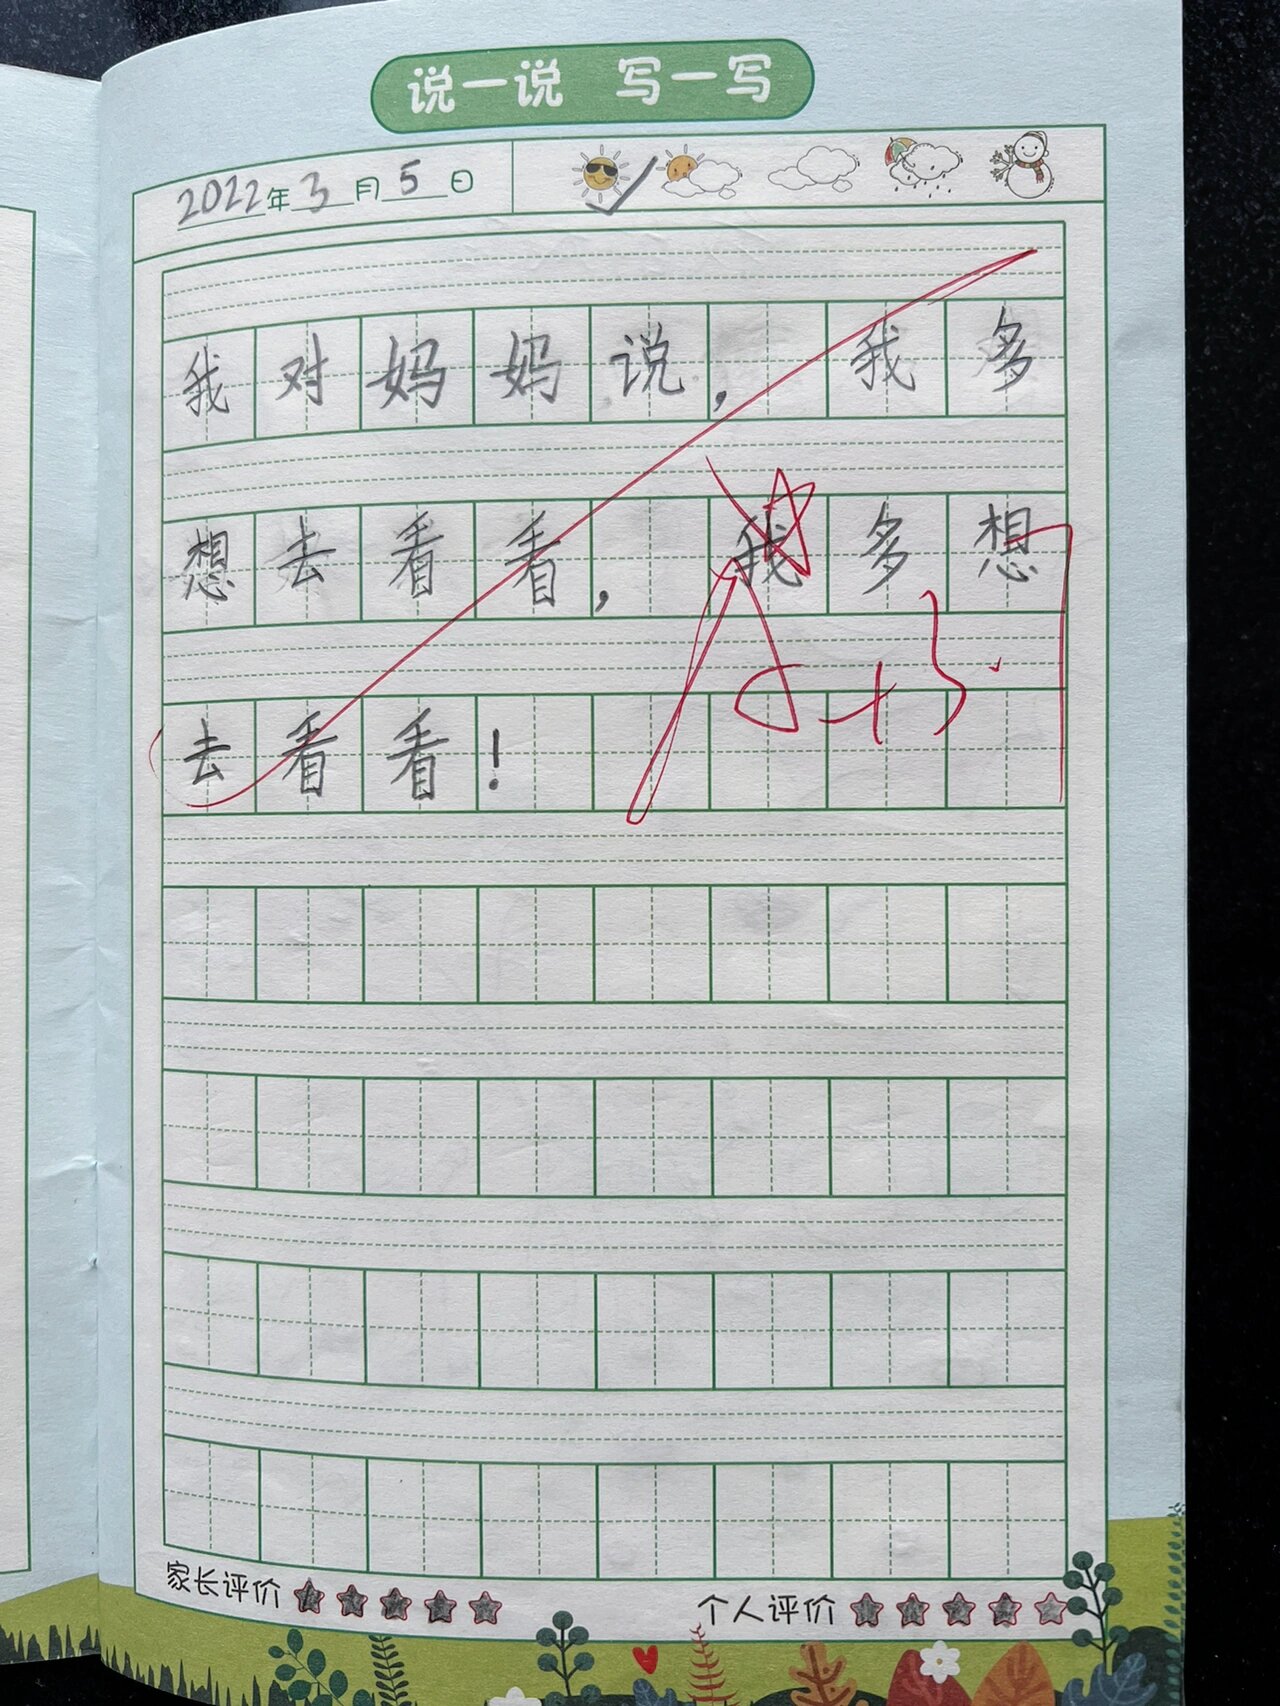 说一说 写一写
2022年3月5日
我对妈妈说，我多
想去看看，我多想
去看看！
家长评价 个人评价